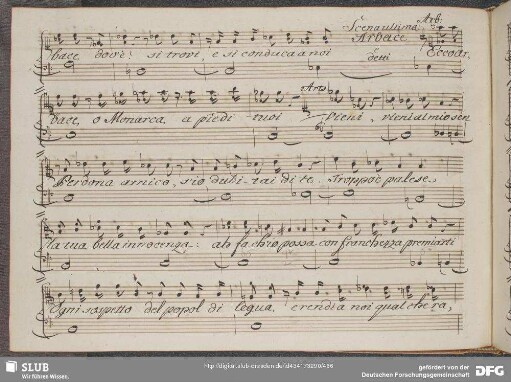 Scena ultima. Arb.
Arbace
bace dov'è? si trovi, e si conduca a noi detti Eccoti Ar
bace, o Monarca a piedi tuoi Arta Vieni, vieni al mio sen
Perdona amico, s'io dubitai di te. Troppo è palese
la tua bella innocenza: ah fa ch'io possa con franchezza premiarti
Ogni sospetto del popol di legua, e rendi a noi qualche ra,
SLUB
Wir führen Wissen.
gefördert von der
Deutschen Forschungsgemeinschaft
DFG